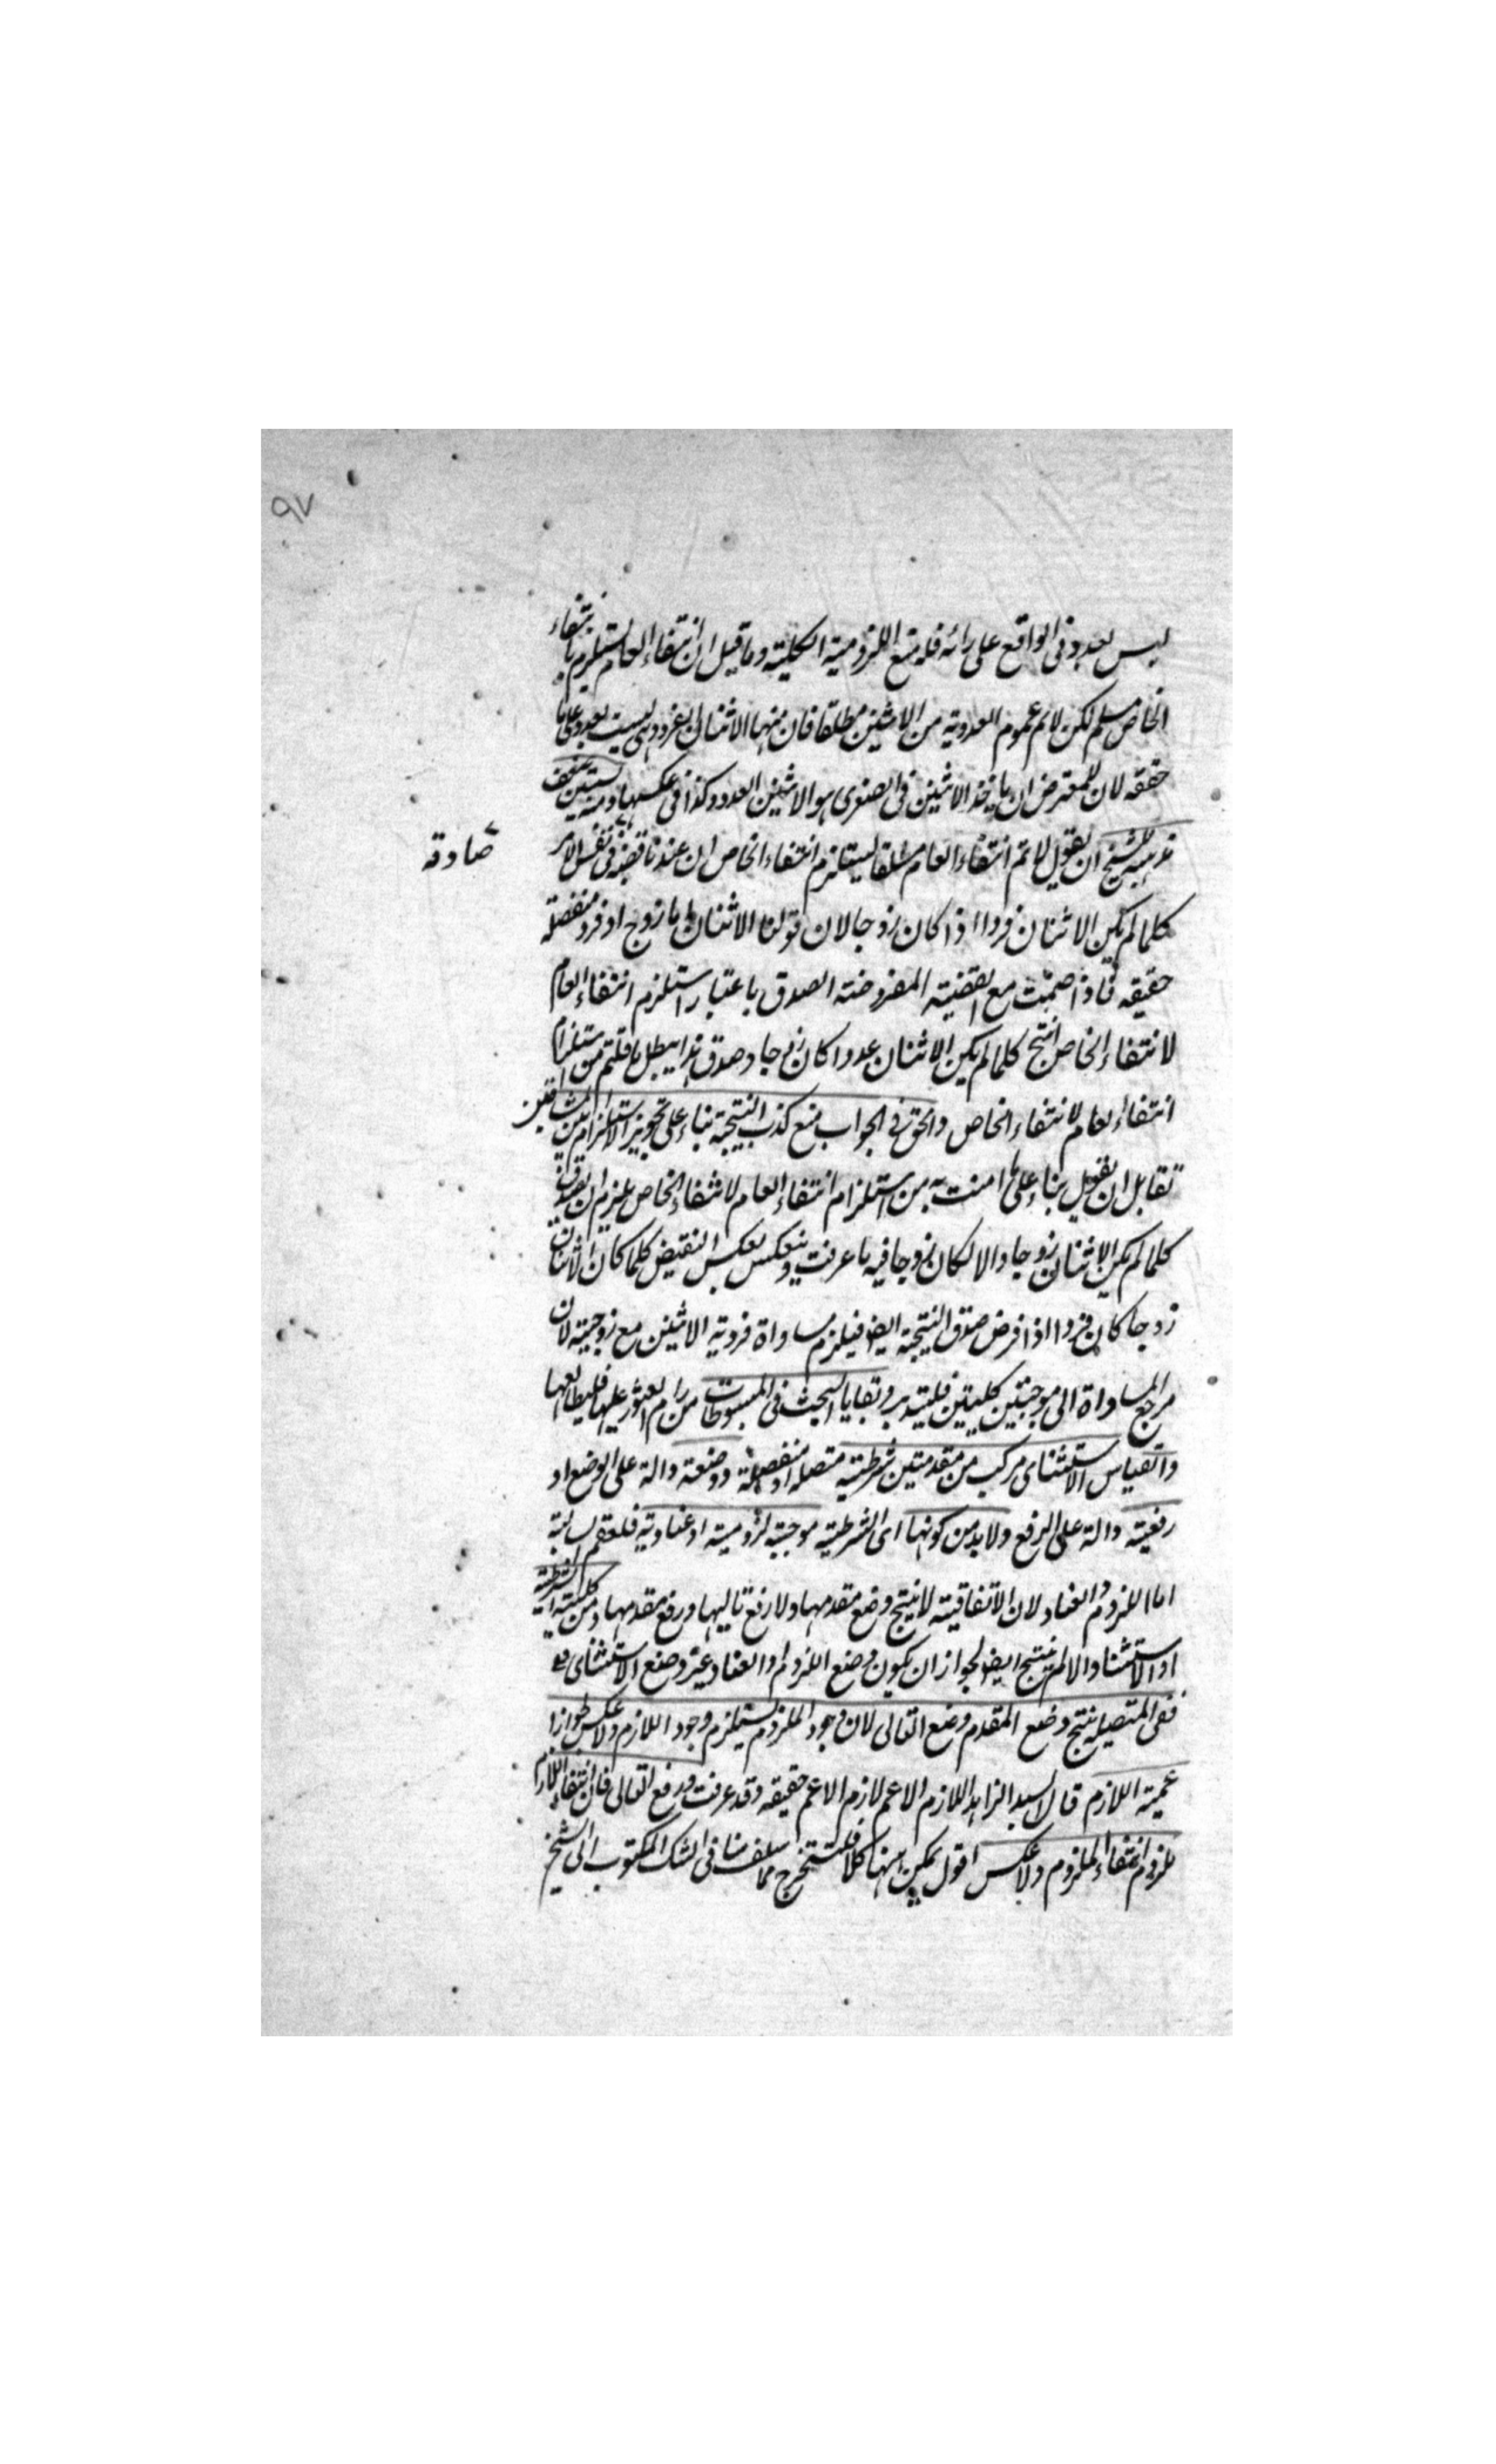 ٩٧
ليس بعدد فى الواقع على رائه فله منع اللزومية الكلية وما قيل ان انتفاء العام يستلزم انتفاء
الخاص مسلم لكن لانم عموم العددية من الاثنين مطلقا فان منها الاثنان الفرد وهى ليست بعدد على ما
حققه لان للمعترض ان ياخذ الاثنين فى الصغرى هو الاثنين العدد وكذا فى عكسها ومنه يستبين
مذهب الشيخ ان يقول لانم انتفاء العام مطلقا يستلزم انتفاء الخاص ان عند نا قضية فى نفس الامر
صادقة
كلما لم يكن الاثنان فردا اذا كان زوجا لان قولنا الاثنان اما زوج او فرد منفصلة
حقيقه فاذا ضمت مع القضية المفروضة الصدق باعتبار استلزم انتفاء العام
لانتفاء الخاص انتج كلما لم يكن الاثنان عددا كان زوجا وصدق هذا يبطل ما قلتم من استلزام
انتفاء العام لانتفاء الخاص والحق فى الجواب منع كذب النتيجة بناء على تجويز الاستلزام بين المتنافيين
تقابل ان يقول بناء على ما امنت به من استلزام انتفاء العام لانتفاء الخاص يلزم ان يصدق
كلما لم يكن الاثنان زوجا والا لكان زوجا فيه ما عرفت وينعكس بعكس النقيض كلما كان الاثنان
زوجا كان فردا اذا فرض صدق النتيجة ايضا فيلزم مساواة فردية الاثنين مع زوجيته لان
مرجع المساواة الى موجبتين كليتين فليتدبر وبقايا البحث فى المبسوطات من رام العثور عليها فليطالعها
والقياس الاستثنائى مركب من مقدمتين شرطية متصلة او منفصلة ووضعية دالة على الوضع او
رفعية دالة على الرفع ولا بد من كونها اى الشرطية موجبة لزومية او عنادية فلعقم سالبة
اما اللزوم والعناد لان الاتفاقية لا ينتج وضع مقدمها ولا رفع تاليها ورفع مقدمها ومن كلية الشرطية
او الاستثناء والا لم ينتج ايضا لجواز ان يكون وضع اللزوم والعناد غير وضع الاستثنائى
ففى المتصلة ينتج وضع المقدم وضع التالى لان وجود الملزوم يستلزم وجود اللازم ولا عكس لجواز
عمية اللازم قال السيد الزاهد اللازم الاعم لازم الاعم حقيقه وقد عرفت ورفع التالى فان انتفاء اللازم
يلزمه انتفاء الملزوم ولا عكس اقول يمكن ههنا كلام يستخرج مما سلف منا فى الشك المكتوب الى الشيخ